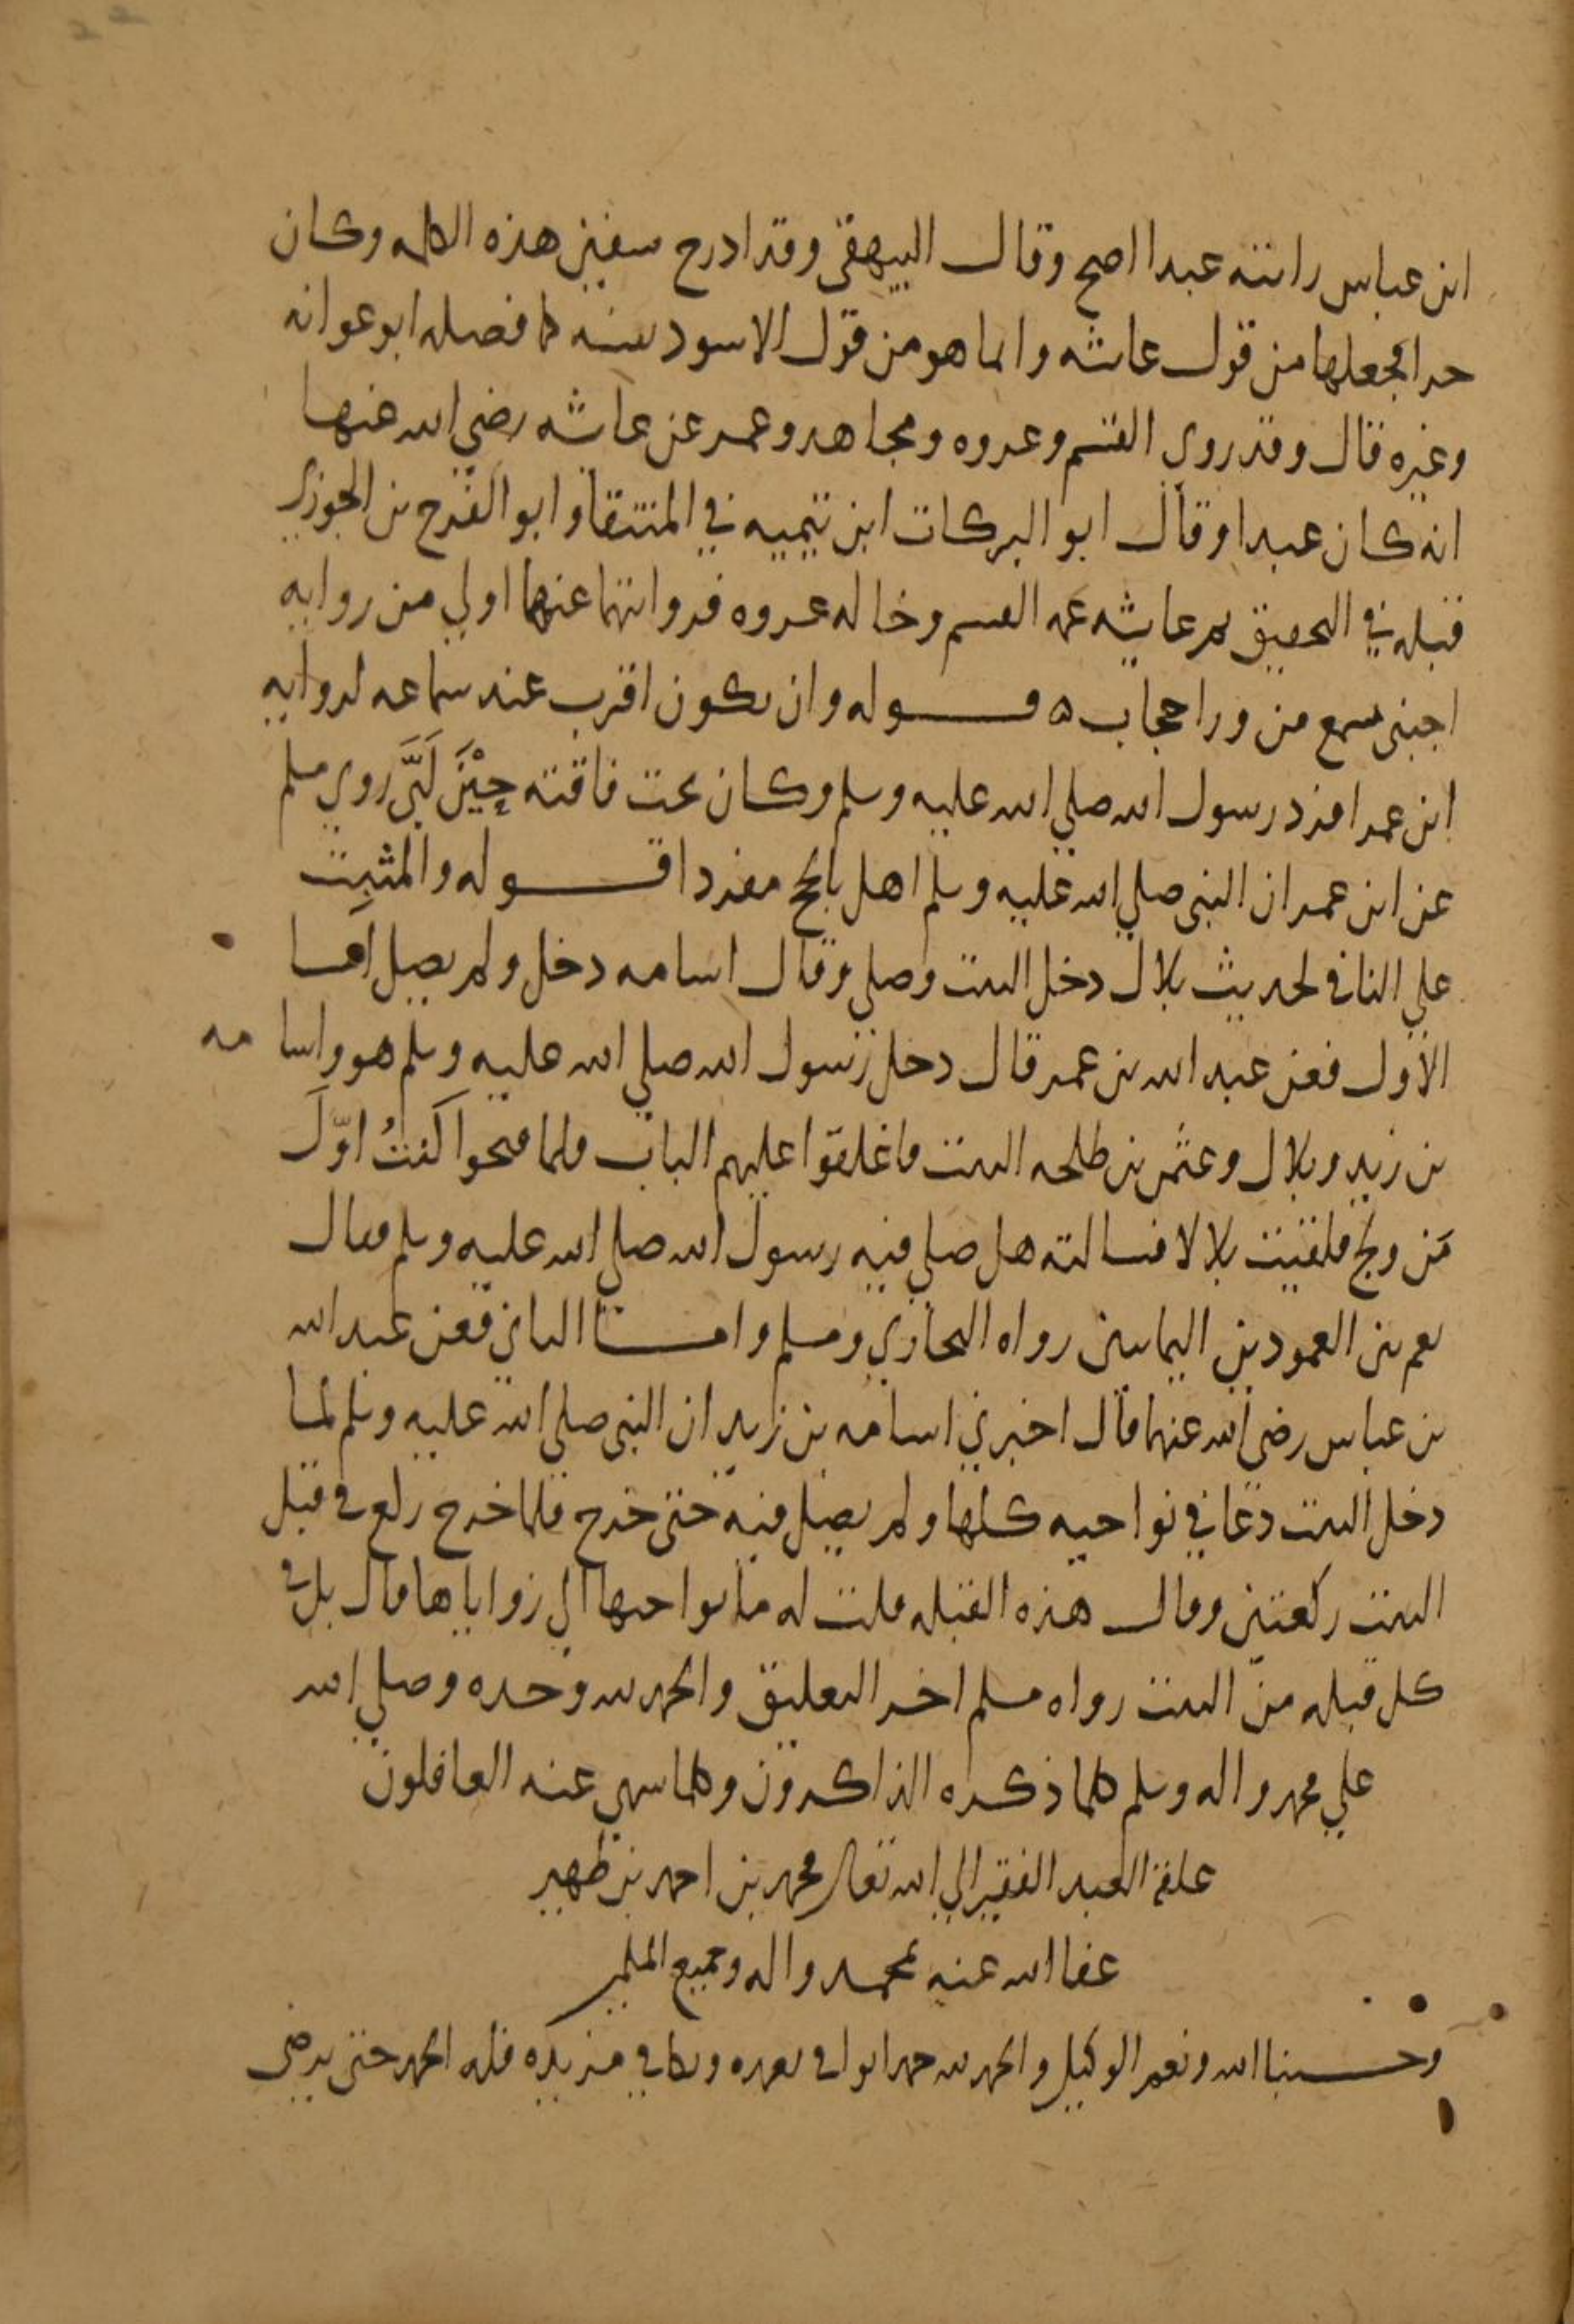 ابن عباس رايته عبدا اصح وقال البيهقي وقد ادرج سفين هذه الكلمه وكان
حرا فجعلها من قول عائشه وانما هو من قول الاسود بينه كما فصله ابو عوانه
وغيره قال وقد روي القسم وعروه ومجاهد وعمره عن عائشه رضي الله عنها
انه كان عبدا وقال ابو البركات ابن تيميه في المنتقا وابو الفرج بن الجوزي
قبله في التحقيق ثم عائشه عمه القسم وخاله عروه فروايتهما عنها اولي من روايه
اجنبي سمع من ورا حجاب ه قوله وان يكون اقرب عند سماعه لروايه
ابن عمر افرد رسول الله صلي الله عليه وسلم وكان تحت ناقته حِيْنَ لَبَّى روي مسلم
عن ابن عمر ان النبي صلي الله عليه وسلم اهل بالحج مفردا قوله والمثبت
علي النافي لحديث بلال دخل البيت وصلي وقال اسامه دخل ولم يصل اما
الاول فعن عبد الله بن عمر قال دخل رسول الله صلي الله عليه وسلم هو واسامه
بن زيد وبلال وعثمن بن طلحه البيت فاغلقوا عليهم الباب فلما فتحوا كنتُ اوّلَ
مَن ولج فلقيت بلالا فسالته هل صلي فيه رسول الله صلي الله عليه وسلم فقال
نعم بين العمودين اليمانيين رواه البخاري ومسلم واما الثاني فعن عبد الله
بن عباس رضي الله عنهما قال اخبرني اسامه بن زيد ان النبي صلي الله عليه وسلم لما
دخل البيت دعا في نواحيه كلها ولم يصل فيه حتى خرج فلما خرج ركع في قبل
البيت ركعتين وقال هذه القبله قلت له ما نواحيها الي زواياها قال بل في
كل قبله من البيت رواه مسلم اخر التعليق والحمد لله وحده وصلي الله
علي محمد واله وسلم كلما ذكره الذاكرون وكلما سهي عنه الغافلون
علقه العبد الفقير الي الله تعالى محمد بن احمد بن ظهير
عفا الله عنه بمحمد واله وجميع المسلمين
وحسبنا الله ونعم الوكيل والحمد لله حمدا يوافي نعمه ويكافي مزيده فله الحمد حتى يرضى